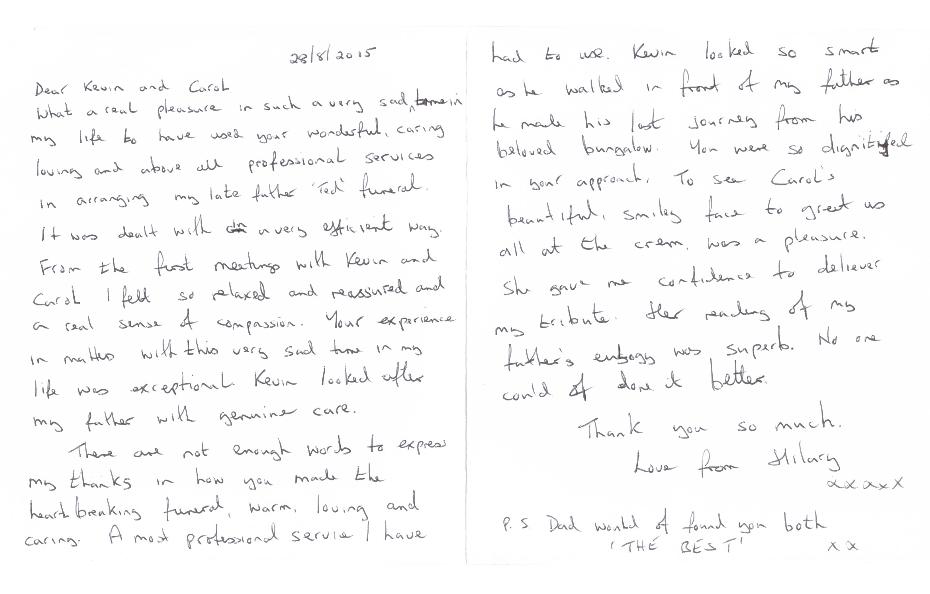 28/8/2015
Dear Kevin and Carol
What a real pleasure in such a very sad, time in
my life to have used your wonderful, caring
loving and above all professional services
in arranging my late father 'Ted' funeral.
It was dealt with in a very efficient way.
From the first meetings with Kevin and
Carol I felt so relaxed and reassured and
a real sense of compassion. Your experience
in matters with this very sad time in my
life was exceptional. Kevin looked after
my father with genuine care.
There are not enough words to express
my thanks in how you made the
heartbreaking funeral, warm, loving and
caring. A most professional service I have
had to use. Kevin looked so smart
as he walked in front of my father as
he made his last journey from his
beloved bungalow. You were so dignified
in your approach. To see Carol's
beautiful, smiley face to greet us
all at the crem, was a pleasure.
She gave me confidence to deliever
my tribute. Her reading of my
father's eulogy was superb. No one
could of done it better.
Thank you so much.
Love from Hilary
xxxxx
P.S Dad would of found you both
'THE BEST' xx